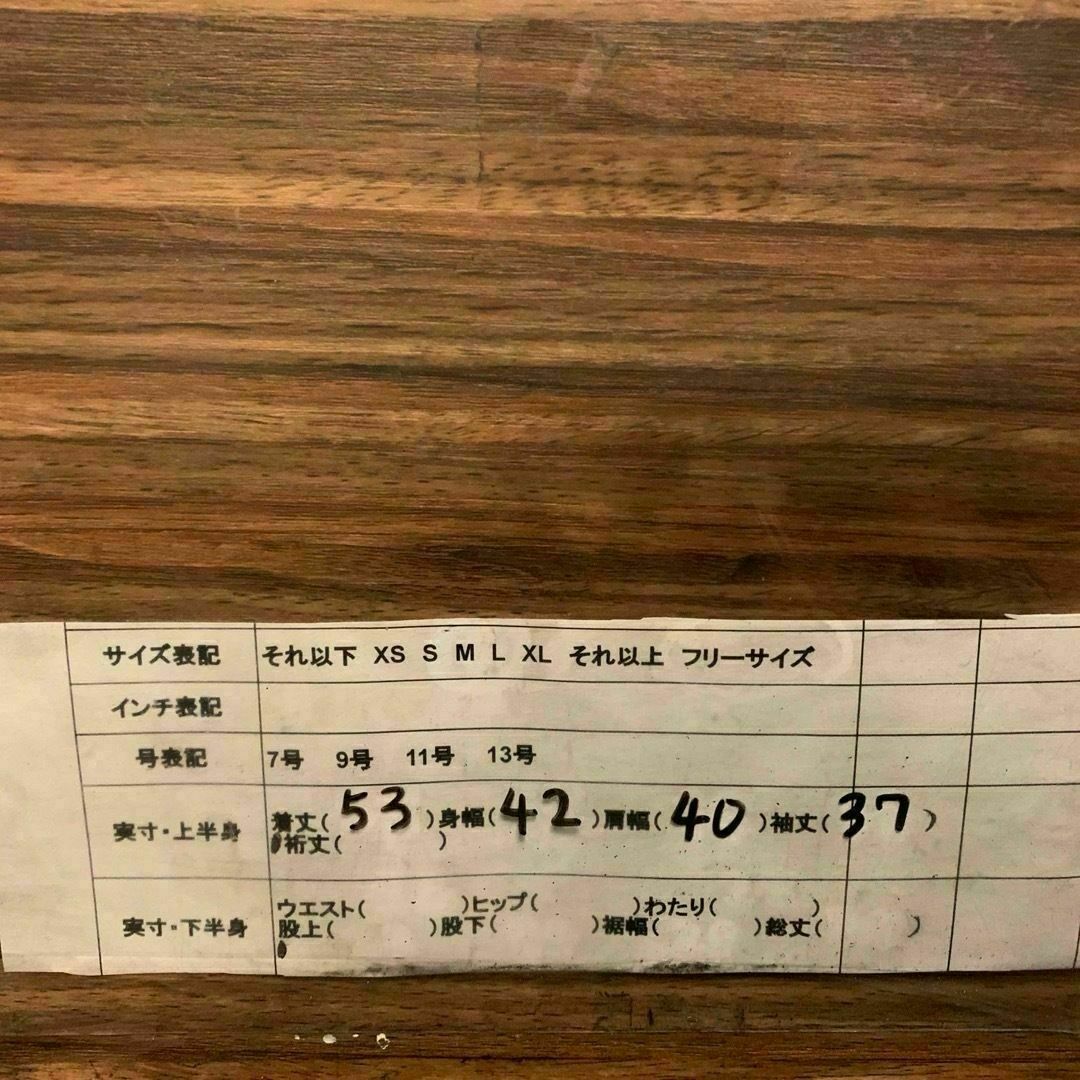 サイズ表記 それ以下 XS S M L XL それ以上 フリーサイズ
インチ表記
号表記 7号 9号 11号 13号
実寸・上半身 着丈( 53 )身幅( 42 )肩幅( 40 )袖丈( 37 )
裄丈( )
実寸・下半身 ウエスト( )ヒップ( )わたり( )
股上( )股下( )裾幅( )総丈( )